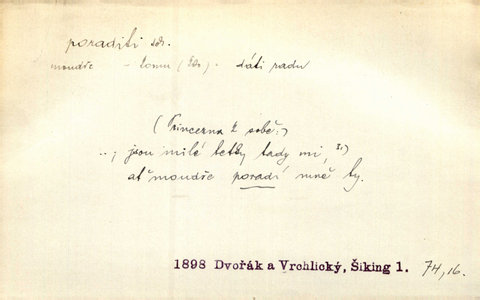 poraditi
moudře – komu (    ) - dáti radu
(Princezna k sobě:)
.., jsou milé tetky tady mi,
ať moudře poradí mně ty.
1898 Dvořák a Vrchlický, Šiking 1. 74,16.